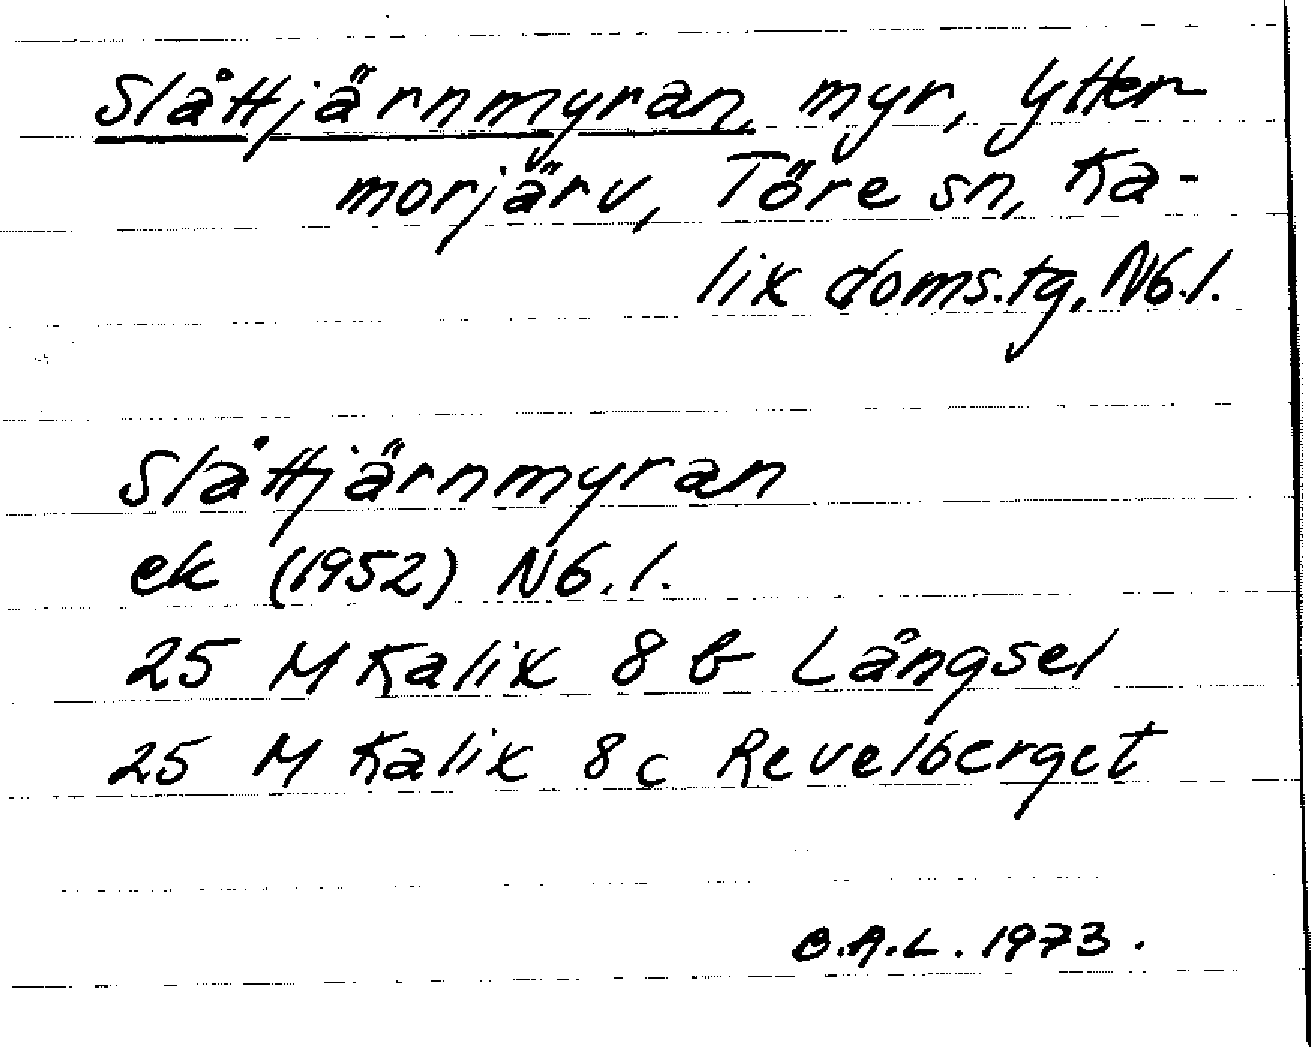 Slåttjärnmyran, myr, Ytter-
morjärv, Töre sn, Ka-
lix doms.tg, Nb.l.
Slåttjärnmyran
ek (1952) Nb.l.
25 M Kalix 8 b Långsel
25 M Kalix 8 c Revelberget
B.A.L. 1973.